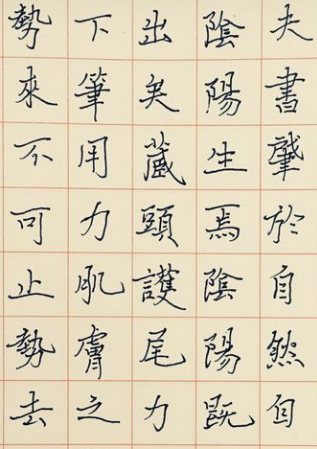 夫書肇於自然自
陰陽生焉陰陽既
出矣藏頭護尾力
下筆用力肌膚之
勢來不可止勢去